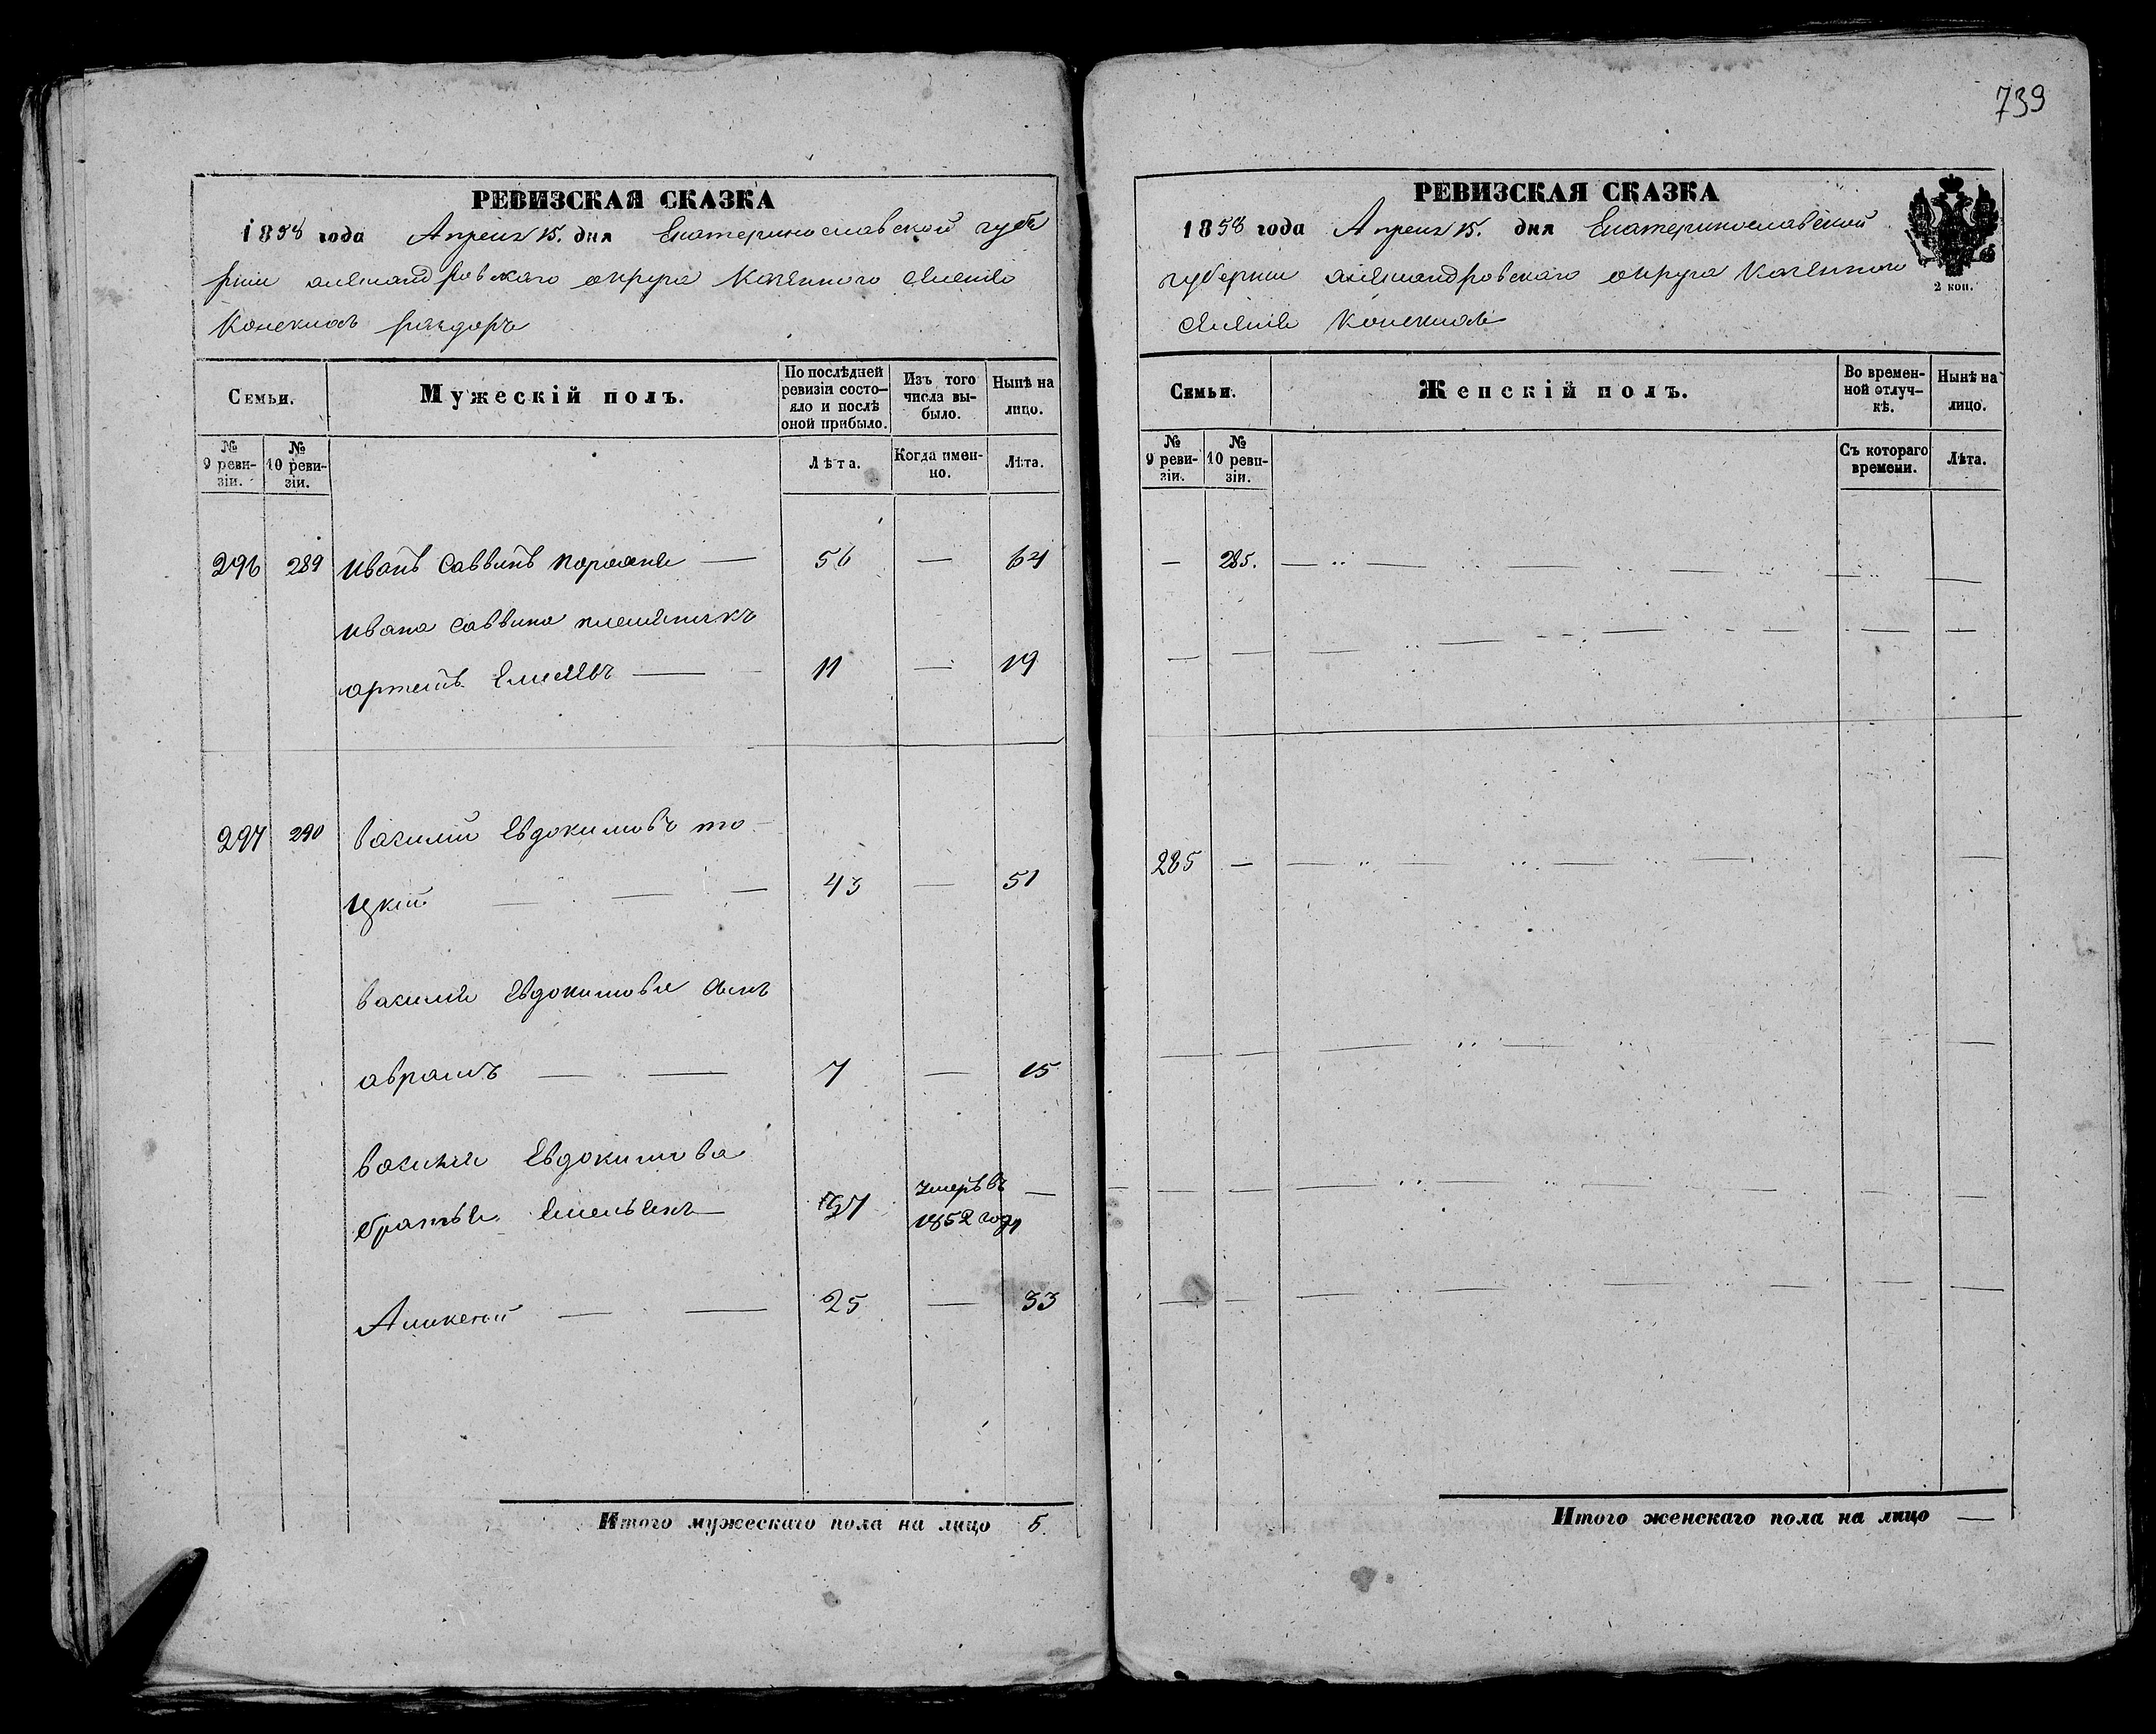 739
РЕВИЗСКАЯ СКАЗКА
1858 года Апреля 15. дня Екатеринославской губе
рнии александровскаго округа Казенного
Конскихъ раздоръ
Семьи.
Мужескій полъ.
По послѣдней ревизіи состо-яло и послѣ оной прибыло.
Изъ того числа вы-было.
Нынѣ на лицо.
№ 9 реви-зіи.
№ 10 реви-зіи.
Лѣта.
Когда имен-но.
Лѣта.
296 289 иванъ Саввинъ — 56 — 64
ивана Саввина племянникъ
артемъ Елисѣевъ — 11 — 19
297 290 василій Евдокимовъ то-
цкій — — — 43 — 51
василія Евдокимова сынъ
аврамъ — — 7 — 15
василія Евдокимова
братья Емельянъ — 37 умеръ въ 1852 году —
Аликсей — — 25 — 33
Итого мужескаго пола на лицо 5.
РЕВИЗСКАЯ СКАЗКА
1858 года Апреля 15. дня Екатеринославской
губернии александровскаго округа Казенного
2 коп.
Семьи.
Женскій полъ.
Во времен-ной отлуч-кѣ.
Нынѣ на лицо.
№ 9 реви-зіи.
№ 10 реви-зіи.
Съ котораго времени.
Лѣта.
— 285.
285 —
Итого женскаго пола на лицо —